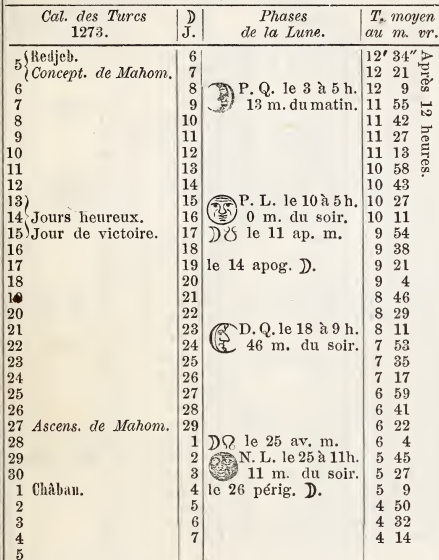 Cal. des Turcs 1273. | ☽ J. | Phases de la Lune. | T. moyen au m. vr.
5 { Redjeb. 6 12' 34"
Concept. de Mahom. 7 12 21
6 8 P. Q. le 3 à 5 h. 12 9
7 9 13 m. du matin. 11 55
8 10 11 42
9 11 11 27
10 12 11 13
11 13 10 58
12 14 10 43
13 ) 15 P. L. le 10 à 5 h. 10 27
14 Jours heureux. 16 0 m. du soir. 10 11
15 ) Jour de victoire. 17 ☽☋ le 11 ap. m. 9 54
16 18 9 38
17 19 le 14 apog. ☽. 9 21
18 20 9 4
19 21 8 46
20 22 8 29
21 23 D. Q. le 18 à 9 h. 8 11
22 24 46 m. du soir. 7 53
23 25 7 35
24 26 7 17
25 27 6 59
26 28 6 41
27 Ascens. de Mahom. 29 6 22
28 1 ☽☊ le 25 av. m. 6 4
29 2 N. L. le 25 à 11h. 5 45
30 3 11 m. du soir. 5 27
1 Châban. 4 le 26 périg. ☽. 5 9
2 5 4 50
3 6 4 32
4 7 4 14
5
Après 12 heures.